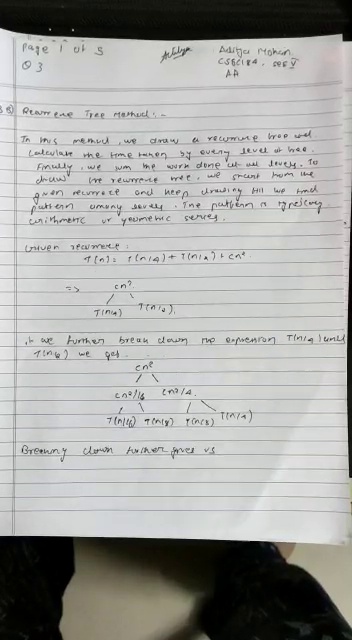 Page 1 of 5
Aditya Mohan
Q 3
CSE/184, sec V
AA
Recurrence Tree Method:-
In this method, we draw a recurrence tree and
calculate the time taken by every level of tree.
Finally, we sum the work done at all levels. To
draw the recurrence tree, we start from the
given recurrence and keep drawing till we find
pattern among levels. The pattern is typically
arithmetic or geometric series.
Given recurrence:
T(n) = T(n/4) + T(n/2) + cn²
=> cn²
T(n/4) T(n/2)
if we further break down the expression T(n/4) and
T(n/2) we get
cn²
cn²/16 cn²/4
T(n/16) T(n/8) T(n/8) T(n/4)
Breaking down further gives us